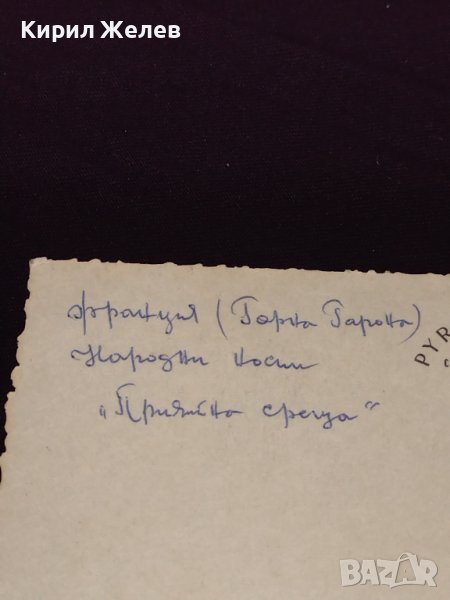 Кирил Желев
Франция (Горна Гарона)
PYR
Народни носии
„Приятна среща“
BAZAR